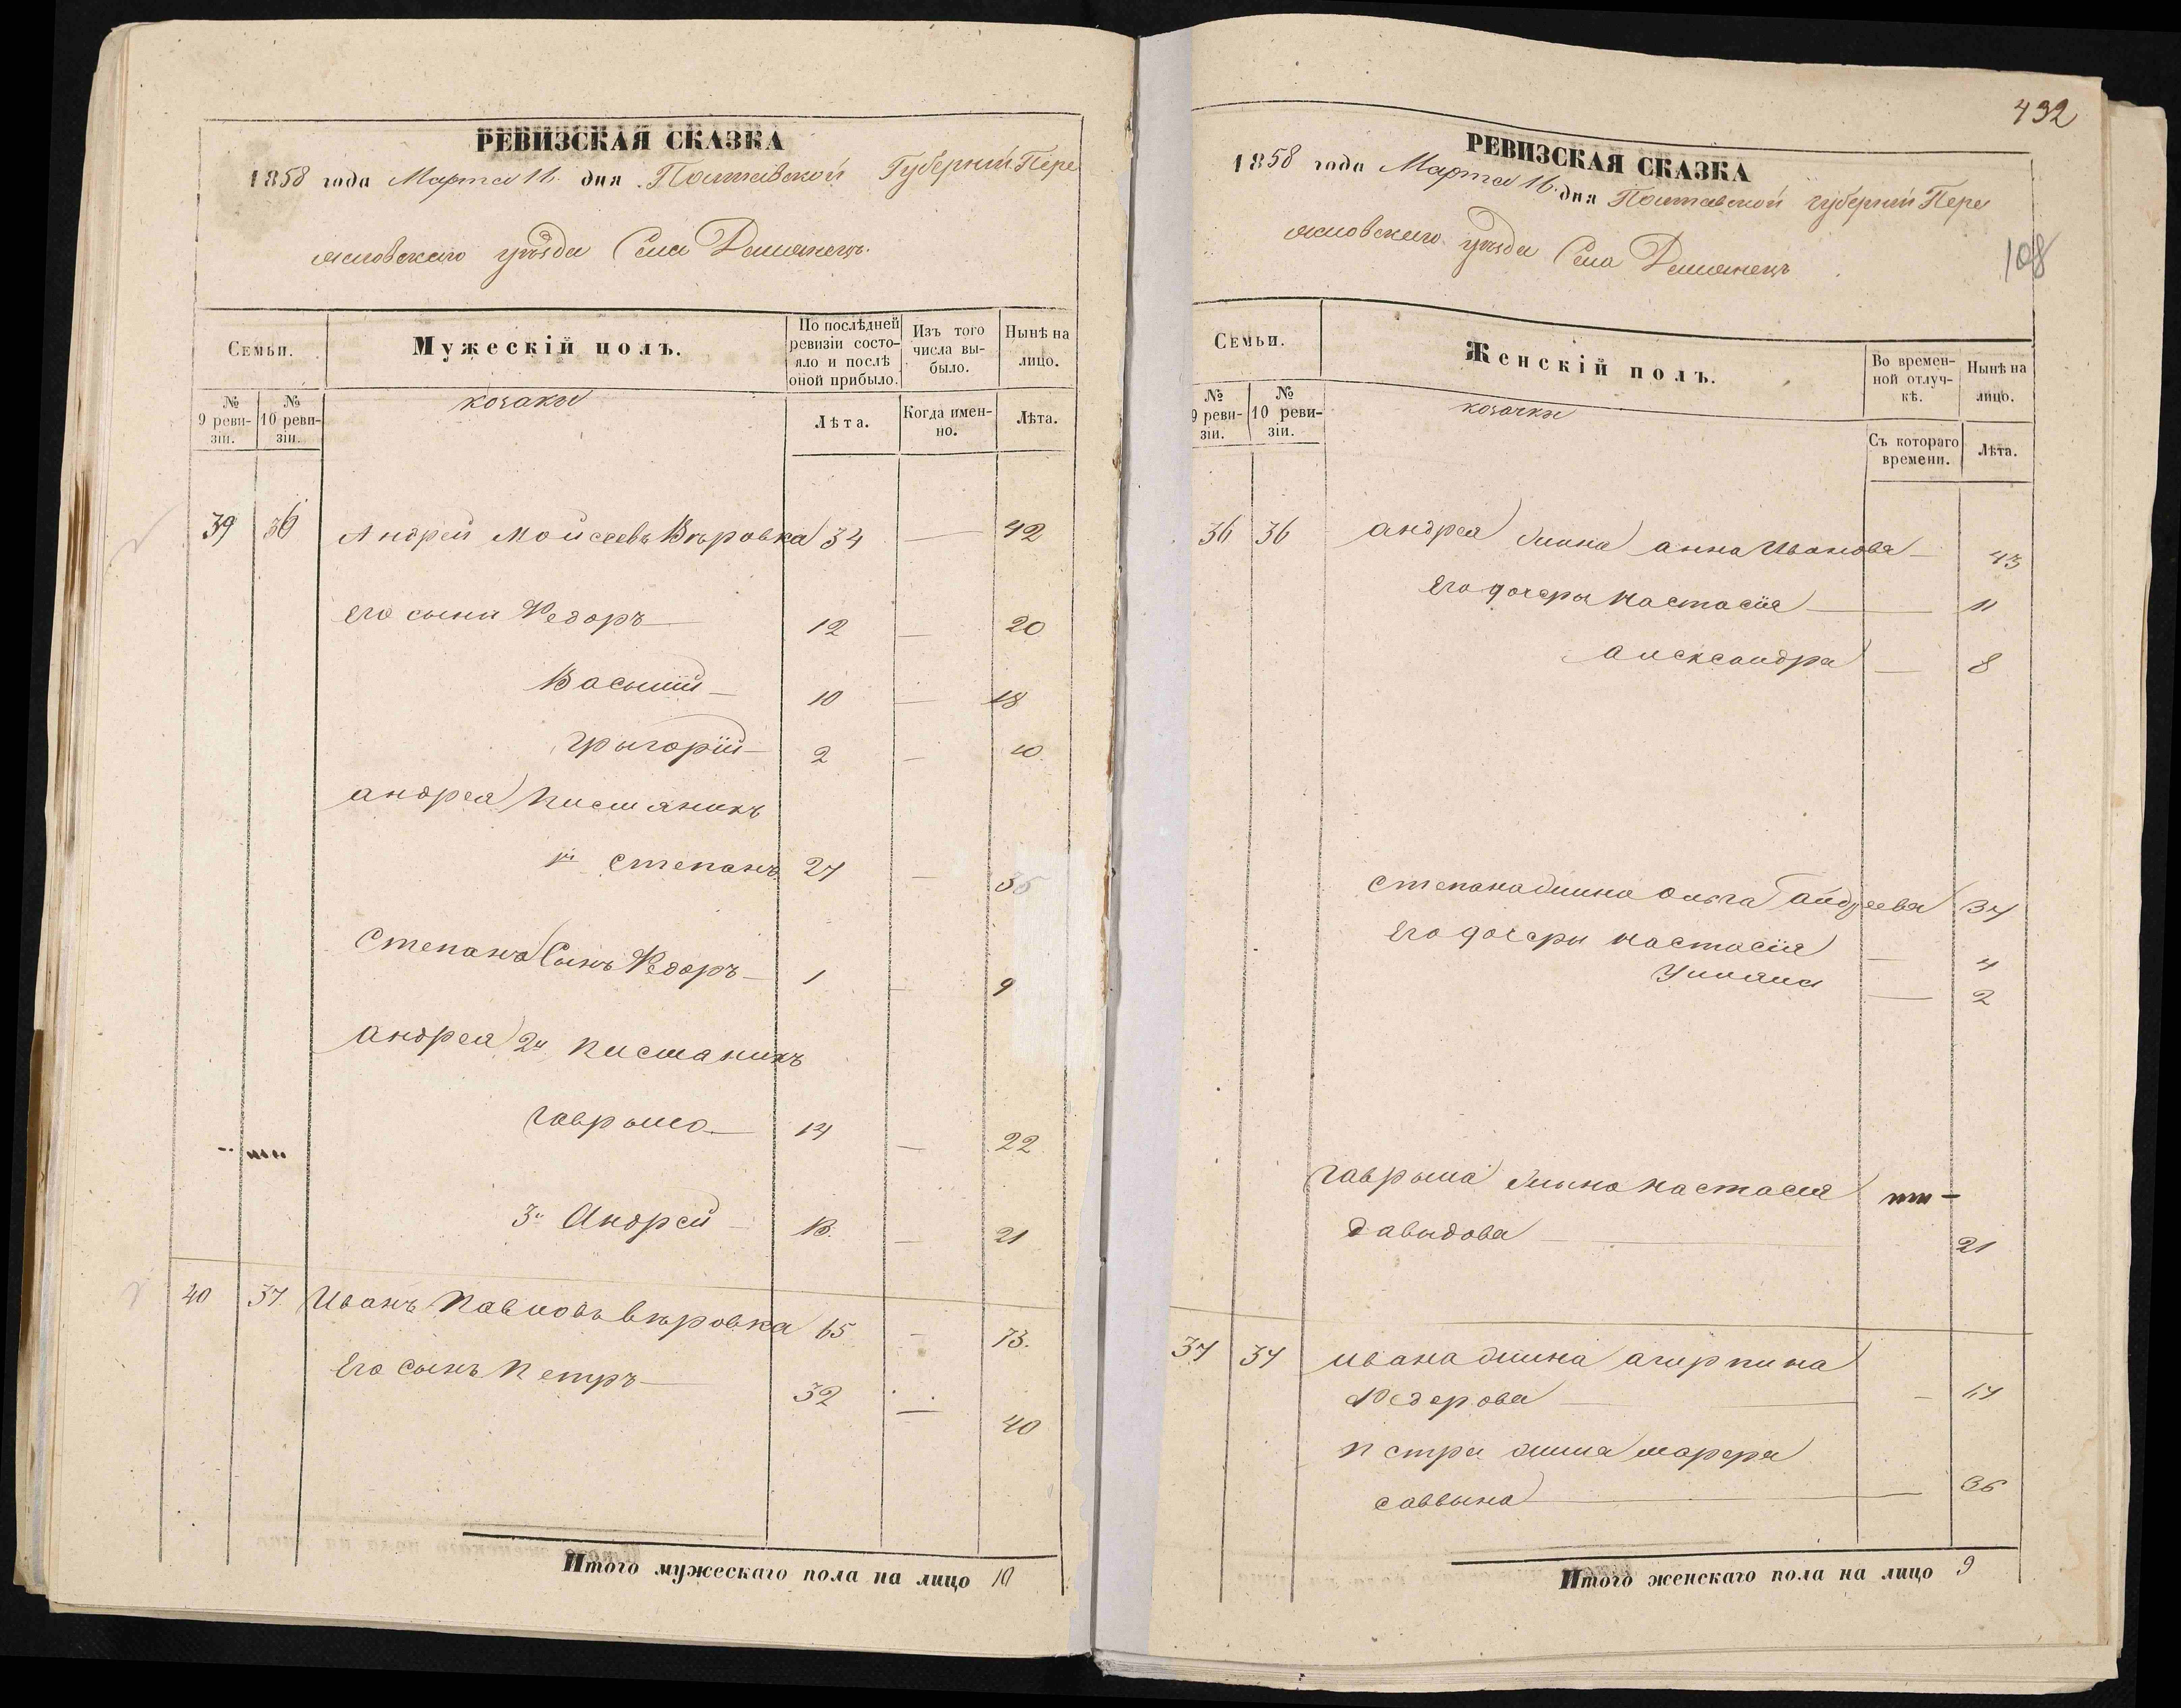 РЕВИЗСКАЯ СКАЗКА
1858 года Марта 16 дня Полтавской Губернии Пере
яславскаго уезда Села Демянецъ
Семьи.
Мужескій полъ.
По послѣдней ревизіи состояло и послѣ оной прибыло.
Изъ того числа выбыло.
Нынѣ на лицо.
№ 9 ревизіи.
№ 10 ревизіи.
козаки
Лѣта.
Когда именно.
Лѣта.
39 36 Андрей Мойсеевъ Вѣровка 34 — 42
Его сыны Федоръ — 12 — 20
Василій — 10 — 18
Григорій — 2 — 10
андрея
Степанъ 27 — 35
Степана Сынъ Федоръ — 1 — 9
Андрея 2й
гаврыло — 14 — 22
3й Андрей — 13. — 21
40 37. Иванъ Павловъ вѣровка 65 — 73.
Его сынъ Петръ — 32 — 40
Итого мужескаго пола на лицо 10
432
108
РЕВИЗСКАЯ СКАЗКА
1858 года Марта 16. дня Полтавской губерніи Пере
яславскаго уезда Села Демянецъ
Семьи.
Женскій полъ.
Во временной отлучкѣ.
Нынѣ на лицо.
№ 9 ревизіи.
№ 10 ревизіи.
козачки
Съ котораго времени.
Лѣта.
36 36 андрея жина анна Иванова — 43
Его дочеры настасія — 11
александра — 8
степана жина Ольга Андреева 34
Его дочеры настасія — 4
Улияна — 2
гаврыла жина настасия
давыдова — 21
37 37 ивана жина агирпина
Федерова — 64
петра жина марфа
саввына — 36
Итого женскаго пола на лицо 9